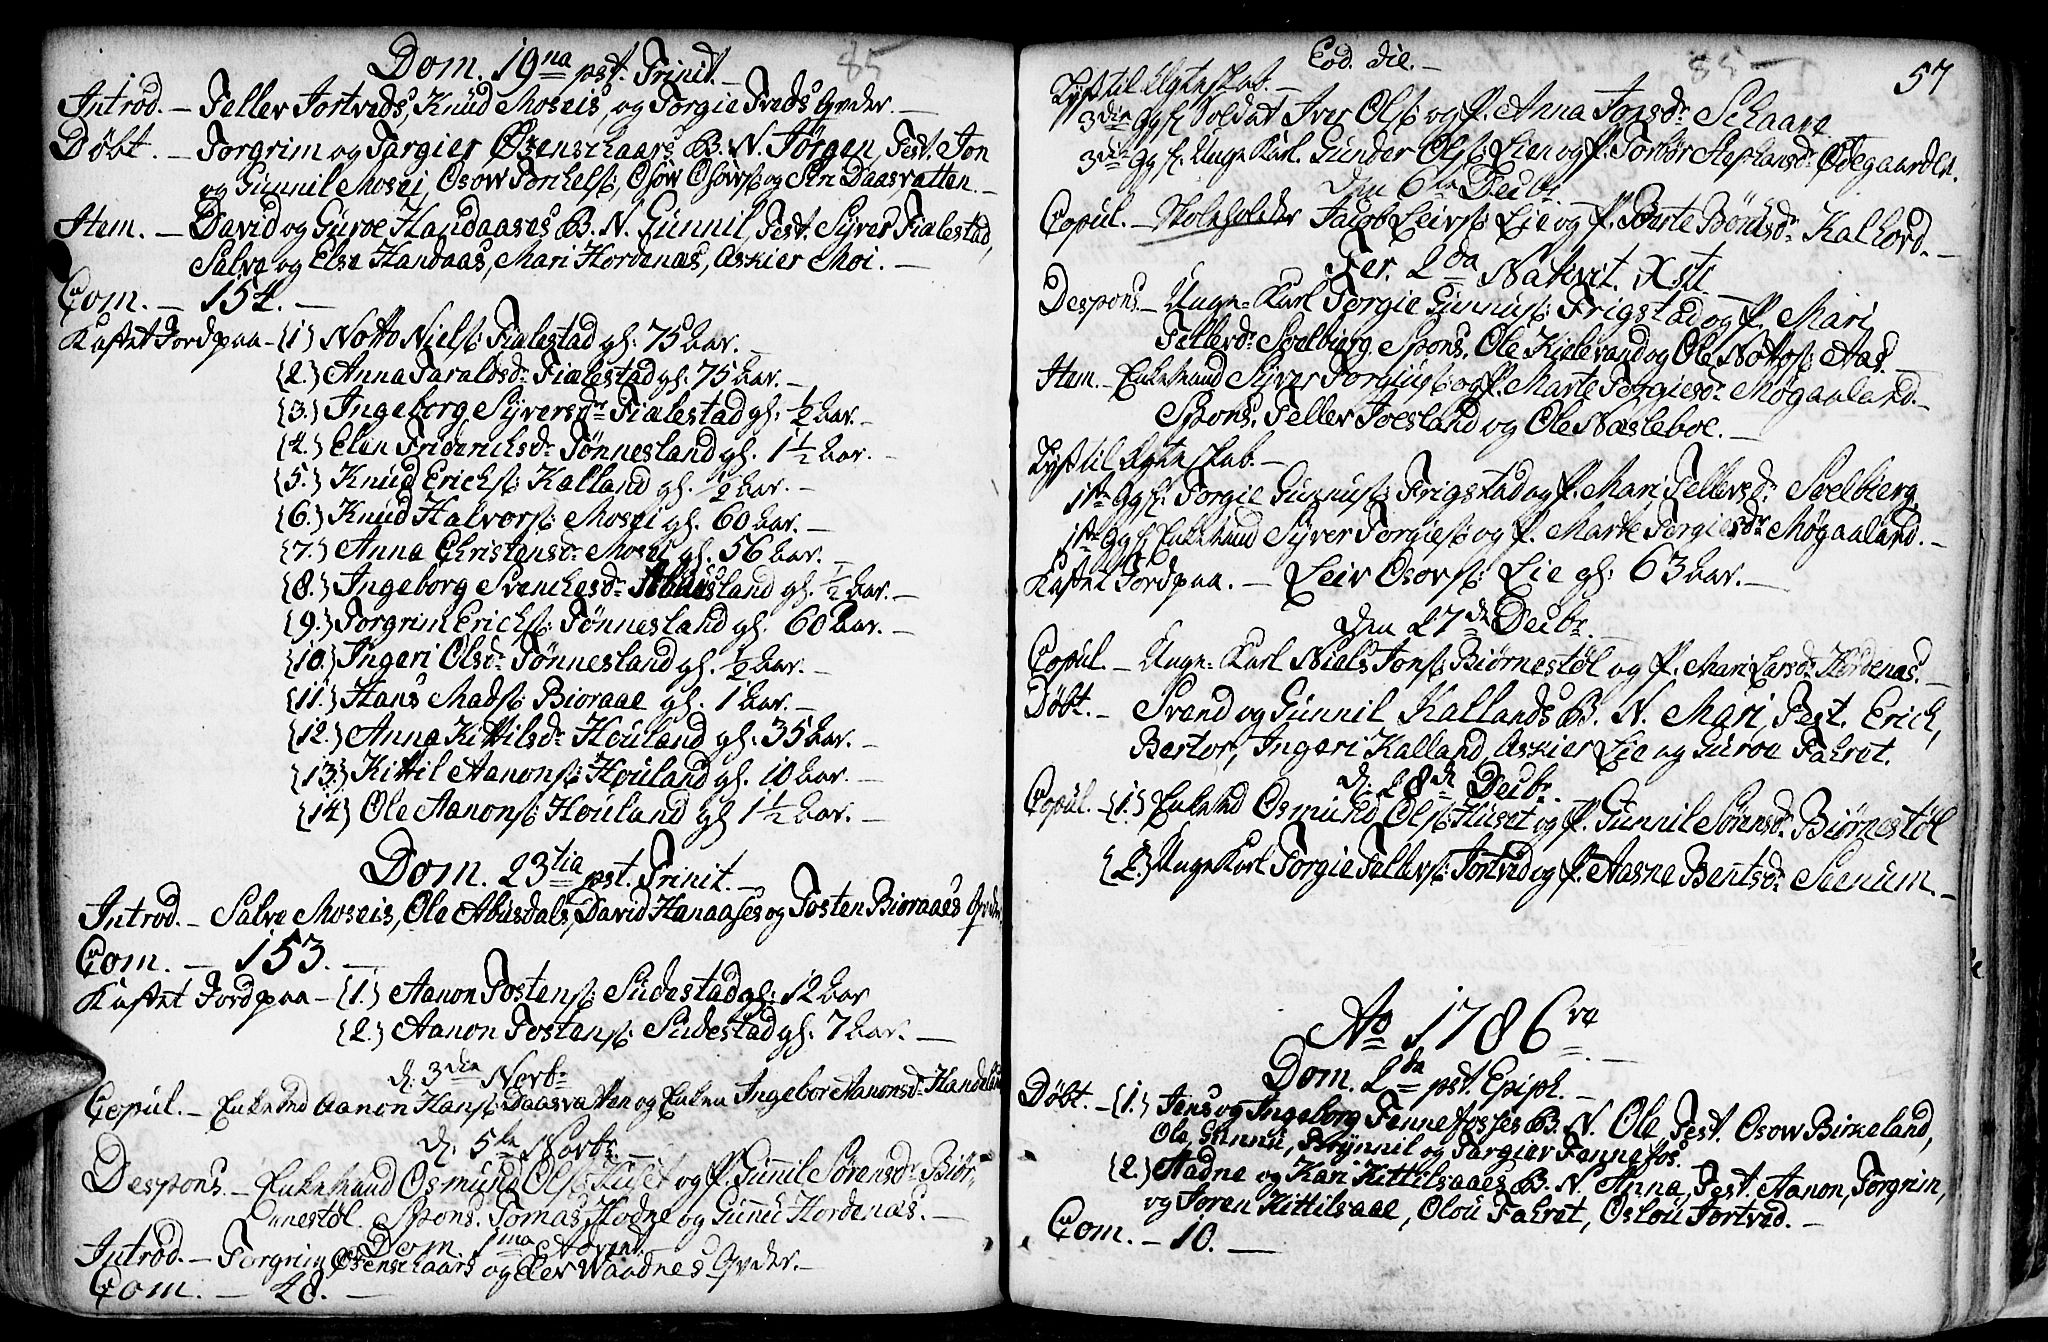 Dom. 19na pst. Trinit. 85
Introd. – Teller Tortveds, Knud Moseis, og Torgie Treds Qvder. –
Døbt. – Torgrim og Targier Øxenschaars B. N. Jørgen, Test. Jon
og Gunnil Mosei, Osow Torchels: Osow Osows: og Siri Daasvatten. –
Item. – David og Guroe Handaases B. N. Gunnil, Test. Syver Fialestad,
Salve og Else Handaas, Mari Hordenæs, Askier Moi. –
Com. – 154. –
Kastet Jord paa – {1} Notto Niels: Fialestad gl: 75 Aar. –
{2.} Anna Taraldsdr Fialestad gl: 75 Aar. –
{3.} Ingeborg Syversdr Fialestad gl. ½ Aar. –
{4.} Elen Friderichsdr Tønnesland gl. 1½ Aar. –
{5.} Knud Erichs: Kalland gl. ½ Aar. –
{6.} Knud Halvors: Mosei gl. 60 Aar. –
{7.} Anna Christensdr Mosei gl. 56 Aar. –
{8.} Ingeborg Svenchesdr gl. ½ Aar. –
{9.} Torgrim Erichs: Tønnesland gl. 60 Aar. –
{10.} Ingeri Olsdr Tønnesland gl. ½ Aar. –
{11.} Hans Mads: Bioraae gl. 1 Aar. –
{12.} Anna Kittilsdr Houland gl. 35 Aar. –
{13.} Kittil Aanons: Houland gl. 10 Aar. –
{14} Ole Aanons: Houland gl 1½ Aar. –
Dom. 23tia pst. Trinit. –
Introd. – Salve Moseis, Ole Abusdals, David Hanaases og Tosten Bioraaes Qvder
Com. – 153. –
Kastet Jord paa – {1.} Aanon Tostens: Sudestad gl: 12 Aar
{2.} Aanon Tostens: Sudestad gl: 7 Aar. –
d: 3dia Novbr
Copul. – Enkemd Aanon Hans: Daasvatten og Enken Ingebor Aanonsdr Handeland
d. 5ta Novbr. –
Despons. – Enkemand Osmund Ols: Huset og P. Gunnil Sørensdr Biør-
nestøl. Spons. Tomas Hodne og Gunnu Hordenæs. –
Dom 1ma Advent.
Introd. – Torgrim Øxenschaars og Waadnes Qvder. –
Com. – 48. –
Eod. die. – 85 – 57
Lyst til Ægteskab. –
3dia Gg f. Soldat Iver Ols: og P. Anna Jonsdr Schaare
3die Gg f. Unge Karl. Gunder Ols: Lien og P. Torbør Stephansdr Ødegaarden.
den 6te Decbr.
Copul. – Skoleholder Jacob Leivs: Lie og P. Berte Bentsdr Kalhovd. –
Fer. 2da Nativit. Xsti
Despons. – Unge-Karl Torgie Gunnus: Frigstad og P. Mari
Tellersdr Soelbierg. Spons. Ole Kielevand og Ole Nottos: Aas. –
Item – Enkemand Syver Torgius: og P. Marte Torgiesdr Møgaaland. –
Spons. Teller Joesland og Ole Næsleboe. –
Lyst til Ægteskab. –
1ste Gg f: Torgie Gunnus: Frigstad og P. Mari Tellersdr Soelbierg
1ste Gg f Enkemand Syver Torgies: og P. Marte Torgiesdr Møgaaland. –
Kastet Jord paa. – Leiv Osovs: Lie gl: 63 Aar. –
den 27de Decbr. –
Copul. – Unge-Karl Niels Jons: Biørnestøl og P. Mari Larsdr Hordenæs. –
Døbt. – Svend og Gunnil Kallands B. N. Mari, Test. Erich,
Bertor, Ingeri Kalland, Askier Lie og Guroe Falret.
d. 28de Decbr.
Copul. – {1.} Enkemd Osmund Ols: Huset og P. Gunnil Sørensdr Biørnestøl
{2} Unge Karl Torgie Tellevs: Tortved og P. Aasne Bentsdr Seenum. –
Ao 1786ra
Dom. 2da pst. Epiph. –
Døbt. – {1.} Jens og Ingeborg Fennefosses B. N. Ole, Test. Osow Birkeland,
Ole, Gunnu, Brynnil og Targier Fannefos.
{2.} Aadne og Kari Kittilsaaes B. N. Anna, Test. Aanon, Torgrim,
og Joren Kittilsaae, Olou Falret, Oslou Tortved. –
Com. – 10. –